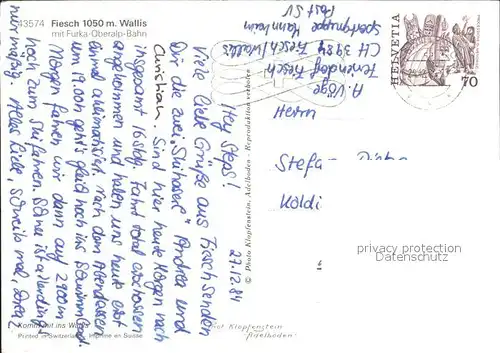 43574 Fiesch 1050 m. Wallis
mit Furka-Oberalp-Bahn
27.12.84
Hey Steps!
Viele liebe Grüße aus Fiesch senden
Dir die zwei "Skihasen" Andrea und
Christian. Sind hier heute Morgen nach
insgesamt 16 stdg. Fahrt total erschossen
angekommen und haben uns heute erst
einmal akklimatisiert. Nach dem Abendessen
um 19.00h geht's gleich noch ins Schwimmbad.
Morgen fahren wir dann auf 2900m
hoch zum Skifahren. Schnee ist allerdings
nur mäßig. Alles Liebe, schreib mal, Andrea
A. Vöge
Feriendorf Fiesch
CH 3984 Fiesch/Wallis
Sportgruppe Mannheim
Post SV
HELVETIA
70
Herrn
Stefa
Koldi
© Photo Klopfenstein, Adelboden - Reproduktion verboten
Komm mit ins Wallis
Printed in Switzerland - Imprimé en Suisse
Klopfenstein
Adelboden
privacy protection
watermark